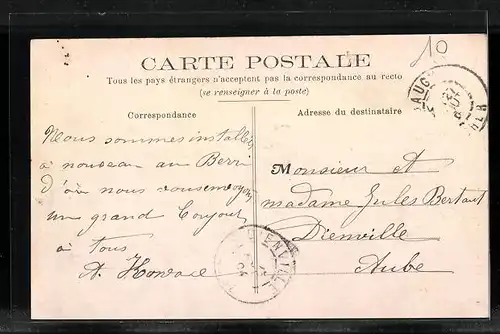 10
CARTE POSTALE
Tous les pays étrangers n'acceptent pas la correspondance au recto
(se renseigner à la poste)
Correspondance
Adresse du destinataire
Nous sommes installés
à nouveau au Berri
d'où nous vous envoyons
un grand bonjour
à tous
A.
Monsieur et
madame Jules Bertaut
Dienville
Aube
ENVILLE